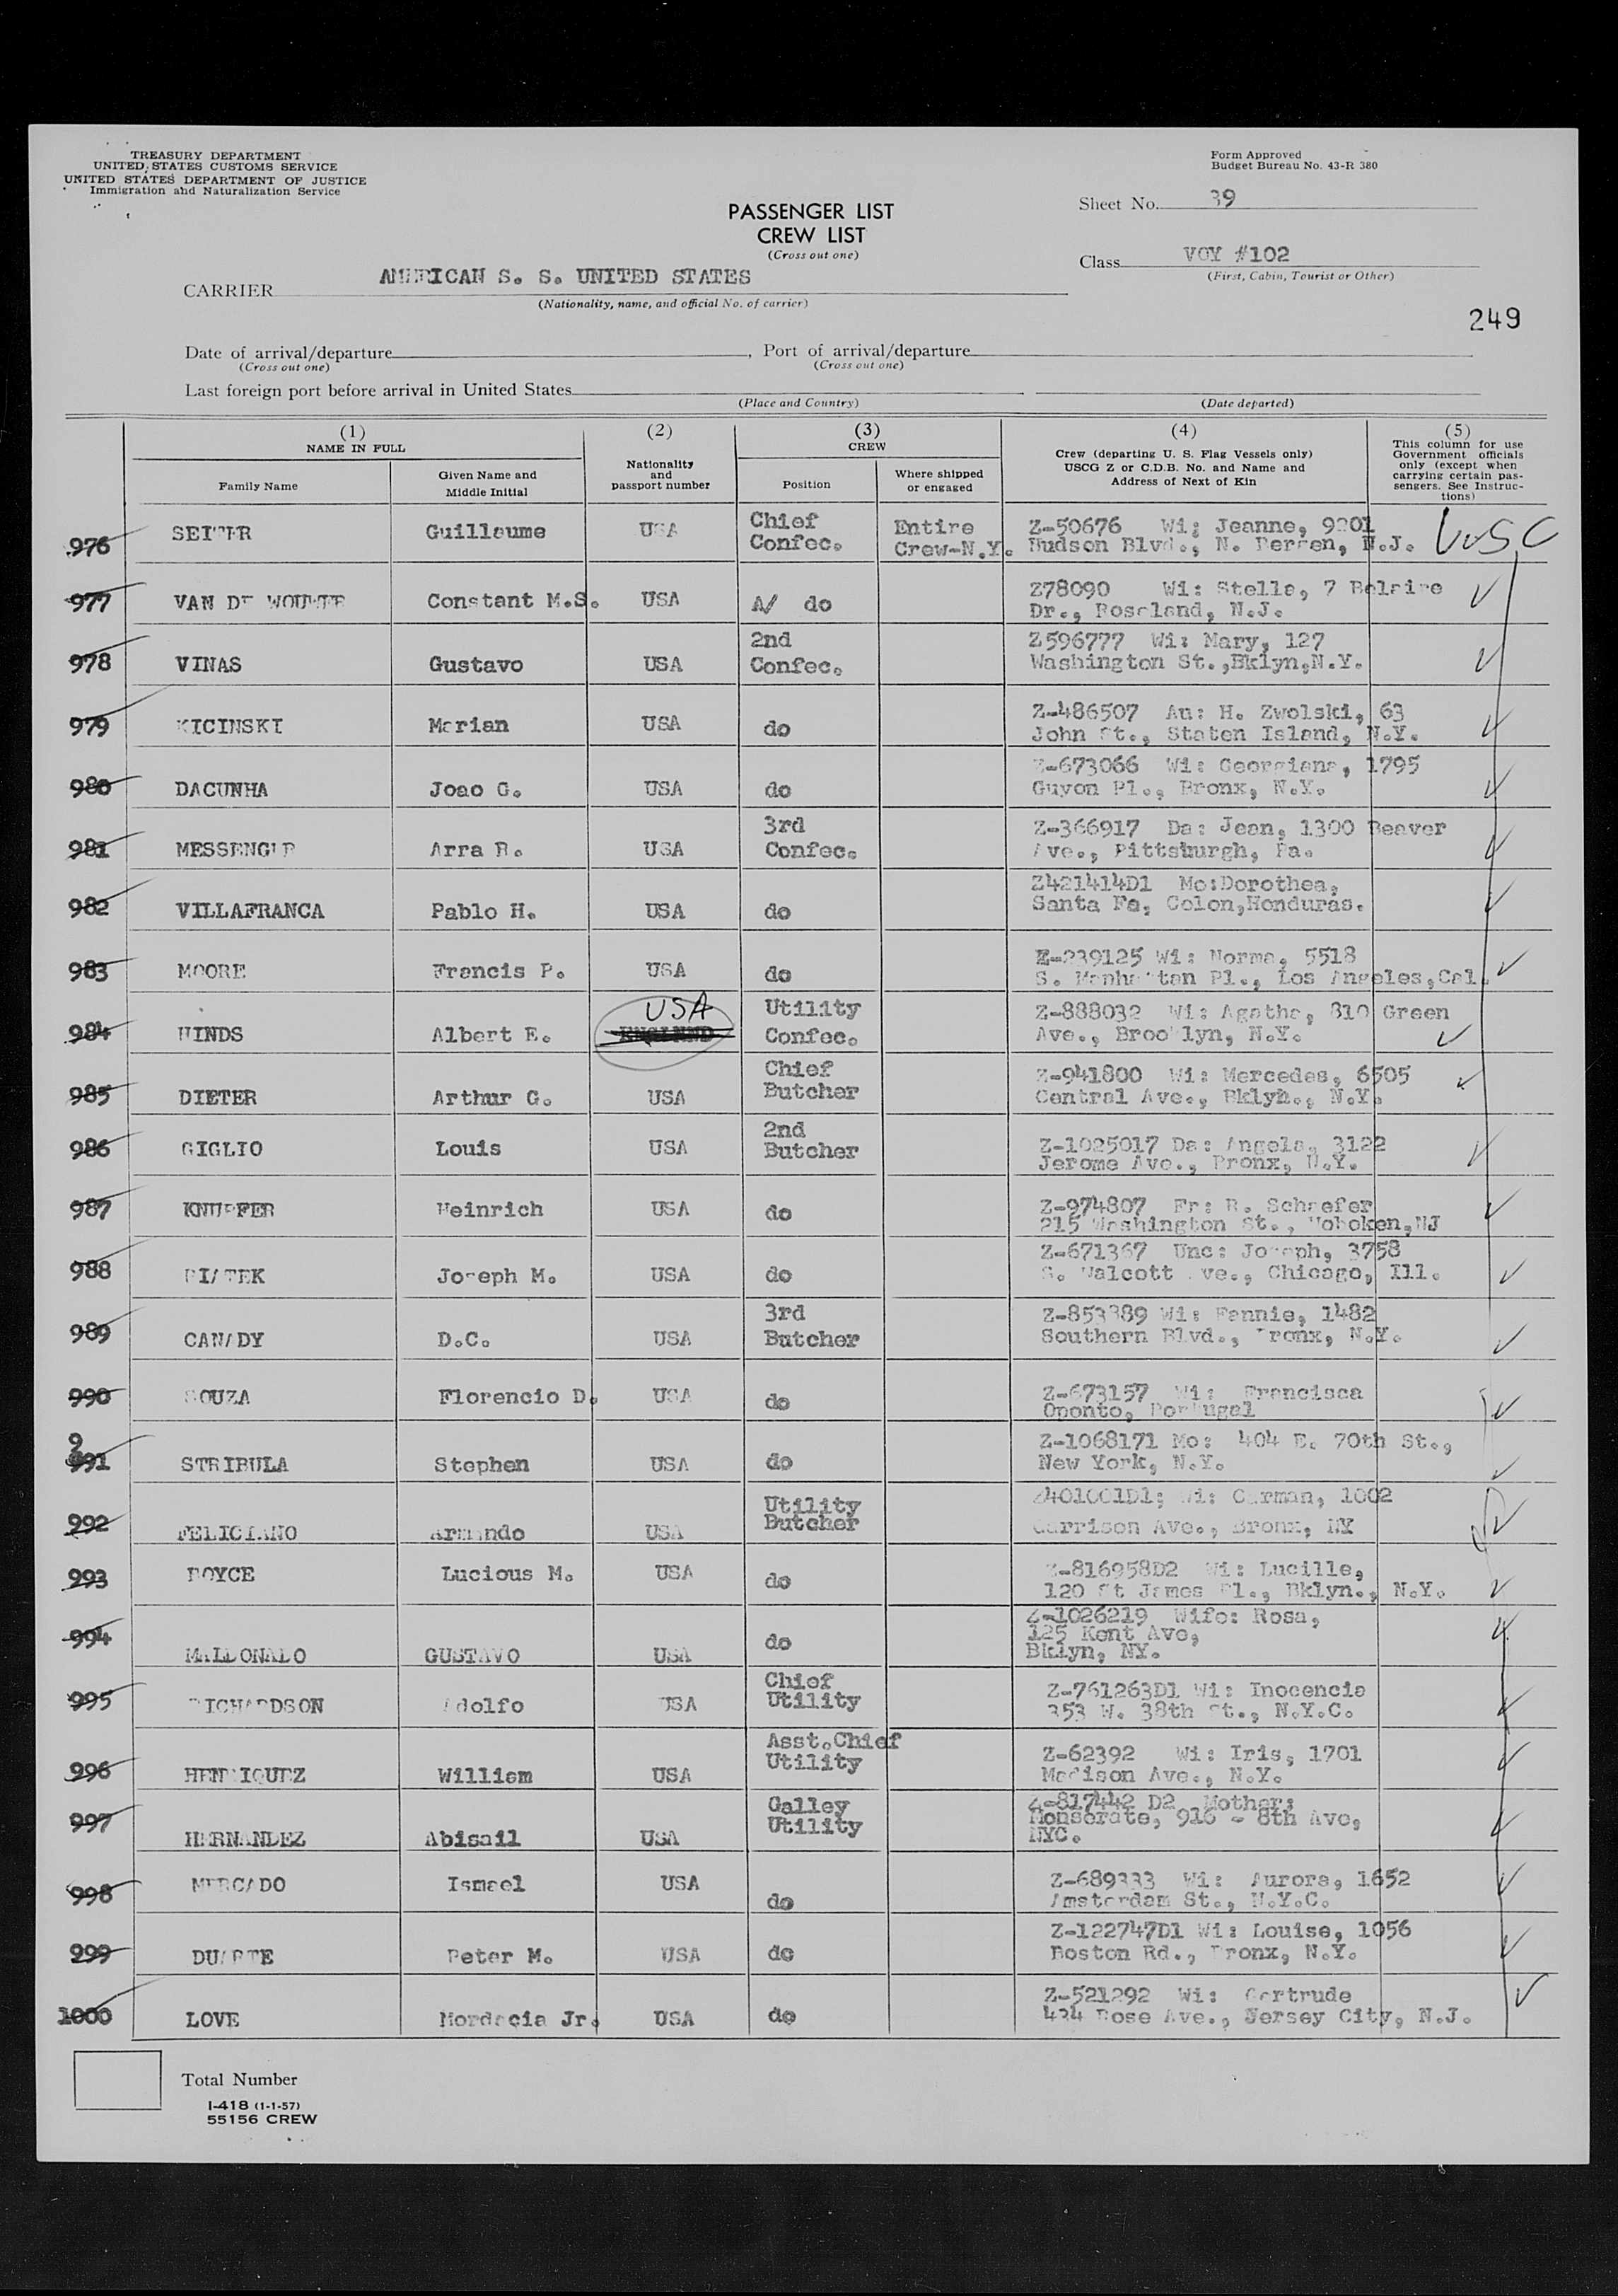 TREASURY DEPARTMENT
UNITED STATES CUSTOMS SERVICE
UNITED STATES DEPARTMENT OF JUSTICE
Immigration and Naturalization Service
Form Approved
Budget Bureau No. 43-R 380
PASSENGER LIST
CREW LIST
(Cross out one)
Sheet No. 39
Class VOY #102
(First, Cabin, Tourist or Other)
CARRIER AMERICAN S. S. UNITED STATES
(Nationality, name, and official No. of carrier)
249
Date of arrival/departure , Port of arrival/departure
(Cross out one) (Cross out one)
Last foreign port before arrival in United States
(Place and Country) (Date departed)
(1) NAME IN FULL
Family Name
Given Name and Middle Initial
(2)
Nationality and passport number
(3) CREW
Position
Where shipped or engaged
(4)
Crew (departing U. S. Flag Vessels only)
USCG Z or C.D.B. No. and Name and
Address of Next of Kin
(5)
This column for use
Government officials
only (except when
carrying certain pas-
sengers. See Instruc-
tions)
976 Guillaume USA Chief Confec. Entire Crew-N.Y. Z-50676 Wi: Jeanne, 9201
Hudson Blvd., N. Bergen, N.J. USC
977 VAN DE WOUWER Constant M.S. USA A/ do Z78090 Wi: Stella, 7 Belaire
Dr., Roseland, N.J.
978 VINAS Gustavo USA 2nd Confec. Z596777 Wi: Mary, 127
Washington St.,Bklyn,N.Y.
979 KICINSKI Marian USA do Z-486507 Au: H. Zwolski, 63
John St., Staten Island, N.Y.
980 DACUNHA Joao G. USA do Z-673066 Wi: Georgiana, 1795
Guyon Pl., Bronx, N.Y.
981 MESSENGER Arra R. USA 3rd Confec. Z-366917 Da: Jean, 1300 Beaver
Ave., Pittsburgh, Pa.
982 VILLAFRANCA Pablo H. USA do Z421414D1 Mo:Dorothea,
Santa Fe, Colon,Honduras.
983 MOORE Francis P. USA do Z-239125 Wi: Norma, 5518
S. Manhattan Pl., Los Angeles,Cal.
984 HINDS Albert E. USA ENGLAND Utility Confec. Z-888032 Wi: Agatha, 810 Green
Ave., Brooklyn, N.Y.
985 DIETER Arthur G. USA Chief Butcher Z-941800 Wi: Mercedes, 6505
Central Ave., Bklyn., N.Y.
986 GIGLIO Louis USA 2nd Butcher Z-1025017 Da: Angela, 3122
Jerome Ave., Bronx, N.Y.
987 KNUPFER Heinrich USA do Z-974807 Fr: R. Schaefer
215 Washington St., Hoboken,NJ
988 PIATEK Joseph M. USA do Z-671367 Unc: Joseph, 3758
S. Walcott Ave., Chicago, Ill.
989 CANADY D.C. USA 3rd Butcher Z-853389 Wi: Fannie, 1482
Southern Blvd., Bronx, N.Y.
990 SOUZA Florencio D. USA do Z-673157 Wi: Francisca
Oponto, Portugal
991 STRIBULA Stephen USA do Z-1068171 Mo: 404 E. 70th St.,
New York, N.Y.
992 FELICIANO Armando USA Utility Butcher Z401001D1; Wi: Carman, 1002
Garrison Ave., Bronx, NY
993 BOYCE Lucious M. USA do Z-816958D2 Wi: Lucille,
120 St James Pl., Bklyn., N.Y.
994 MALDONADO GUSTAVO USA do Z-1026219 Wife: Rosa,
125 Kent Ave,
Bklyn, NY.
995 RICHARDSON Adolfo USA Chief Utility Z-761263D1 Wi: Inocencia
353 W. 38th St., N.Y.C.
996 HENRIQUEZ William USA Asst.Chief Utility Z-62392 Wi: Iris, 1701
Madison Ave., N.Y.
997 HERNANDEZ Abisail USA Galley Utility Z-817442 D2 Mother:
Monserate, 916 - 8th Ave,
NYC.
998 MERCADO Ismael USA do Z-689333 Wi: Aurora, 1652
Amsterdam St., N.Y.C.
999 DUARTE Peter M. USA do Z-122747D1 Wi: Louise, 1056
Boston Rd., Bronx, N.Y.
1000 LOVE Mordecia Jr. USA do Z-521292 Wi: Gertrude
434 Rose Ave., Jersey City, N.J.
Total Number
I-418 (1-1-57)
55156 CREW